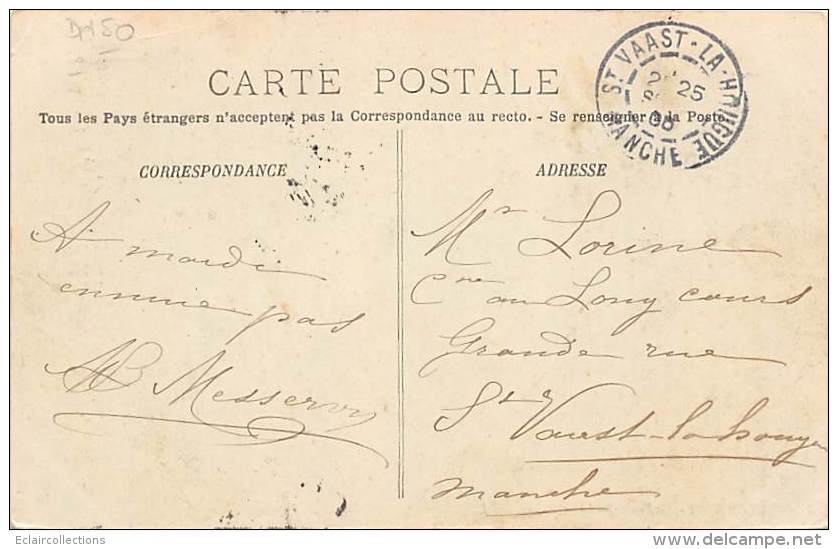 DN50
CARTE POSTALE
Tous les Pays étrangers n'acceptent pas la Correspondance au recto. - Se renseigner à la Poste.
ST VAAST-LA-HOUGUE
25
MANCHE
CORRESPONDANCE
A mardi
ennuie pas
Messervy
ADRESSE
Mr Lorine
Cne au Long cours
Grande rue
St Vaast-la-houge
Manche
Eclaircollections
www.delcampe.net